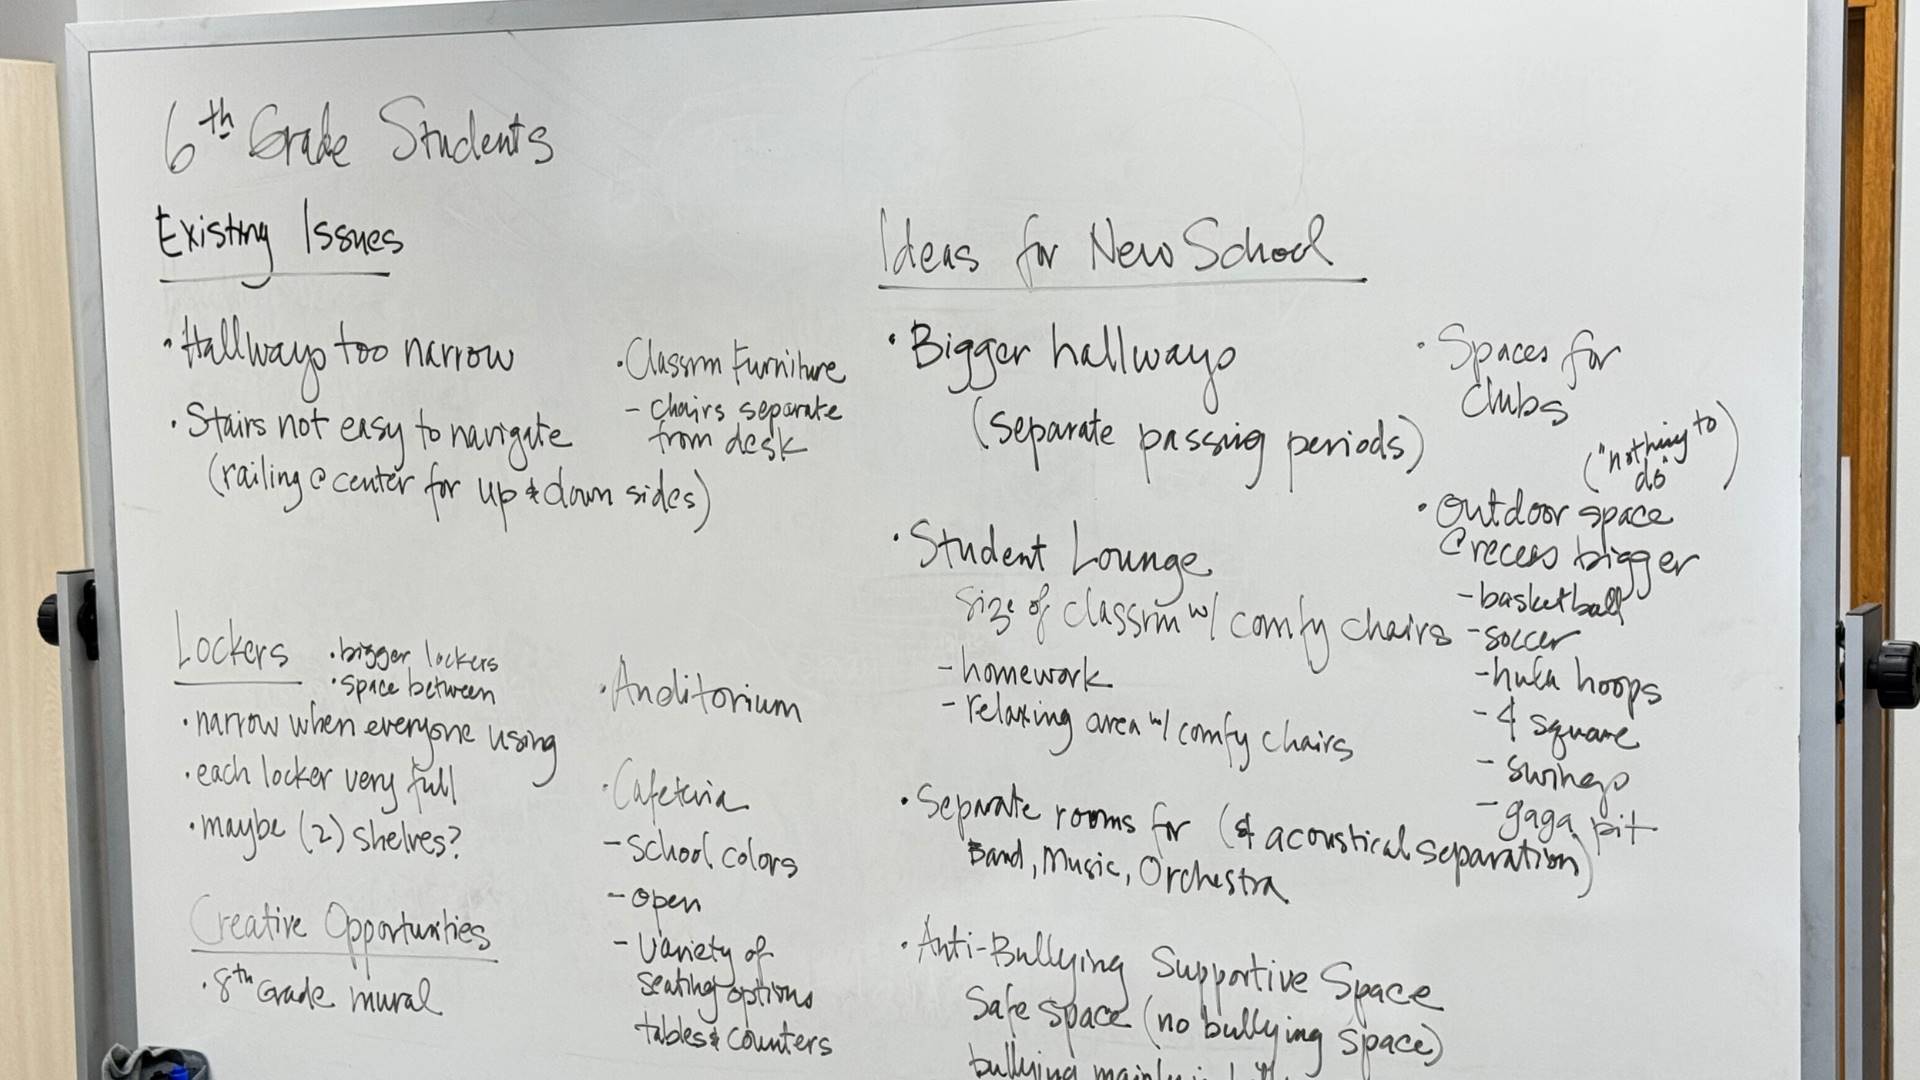 6th Grade Students
Existing Issues
• Hallways too narrow
• Stairs not easy to navigate
(railing @ center for up & down sides)
• Classrm Furniture
- chairs separate
from desk
Lockers
• bigger lockers
• space between
• narrow when everyone using
• each locker very full
• maybe (2) shelves?
Creative Opportunities
• 8th Grade mural
• Auditorium
• Cafeteria
- School colors
- open
- Variety of
seating options
tables & counters
Ideas for New School
• Bigger hallways
(separate passing periods)
• Student Lounge
Size of classrm w/ comfy chairs
- homework
- relaxing area w/ comfy chairs
• Separate rooms for (& acoustical separation)
Band, Music, Orchestra
• Anti-Bullying Supportive Space
Safe space (no bullying space)
bullying mainly
• Spaces for
clubs
("nothing to
do")
• Outdoor space
@ recess bigger
- basketball
- soccer
- hula hoops
- 4 square
- swings
- gaga pit